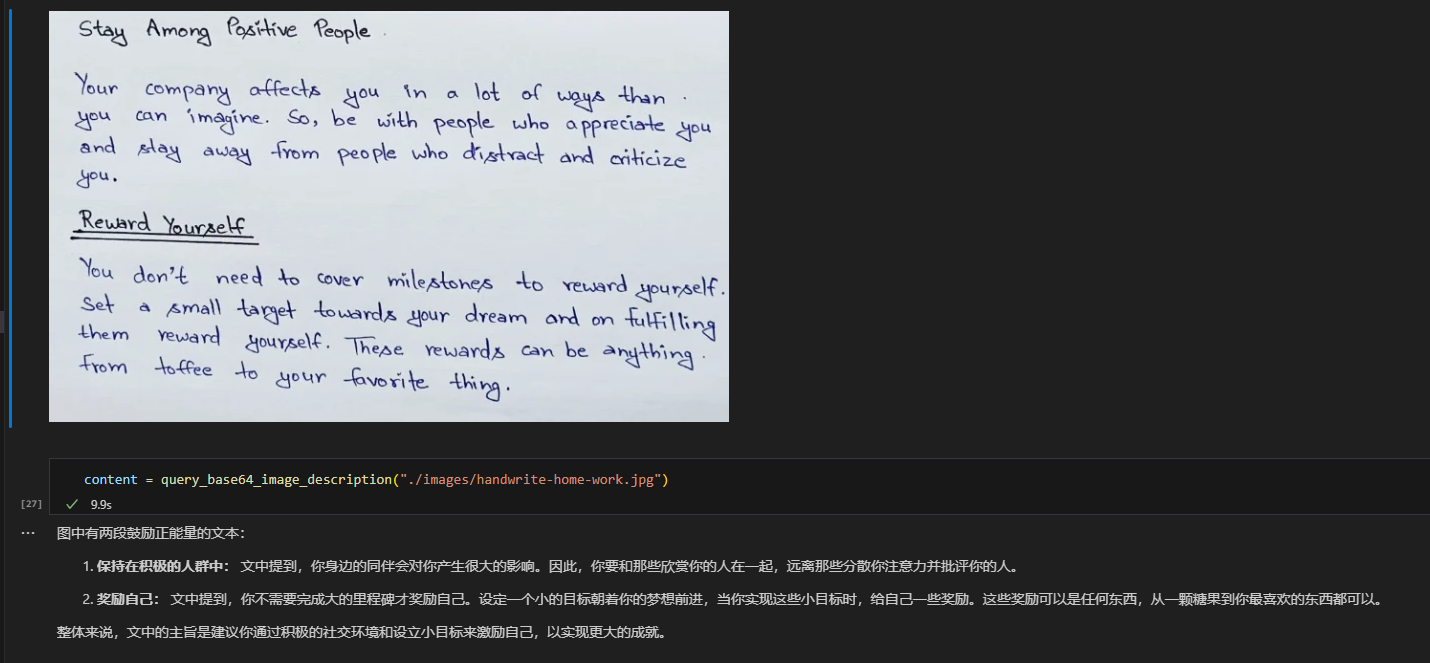 Stay Among Positive People.
Your company affects you in a lot of ways than
you can imagine. So, be with people who appreciate you
and stay away from people who distract and criticize
you.
Reward Yourself
You don't need to cover milestones to reward yourself.
Set a small target towards your dream and on fulfilling
them reward yourself. These rewards can be anything.
from toffee to your favorite thing.
content = query_base64_image_description("./images/handwrite-home-work.jpg")
[27] ✓ 9.9s
... 图中有两段鼓励正能量的文本：
1. 保持在积极的人群中： 文中提到，你身边的同伴会对你产生很大的影响。因此，你要和那些欣赏你的人在一起，远离那些分散你注意力并批评你的人。
2. 奖励自己： 文中提到，你不需要完成大的里程碑才奖励自己。设定一个小的目标朝着你的梦想前进，当你实现这些小目标时，给自己一些奖励。这些奖励可以是任何东西，从一颗糖果到你最喜欢的东西都可以。
整体来说，文中的主旨是建议你通过积极的社交环境和设立小目标来激励自己，以实现更大的成就。